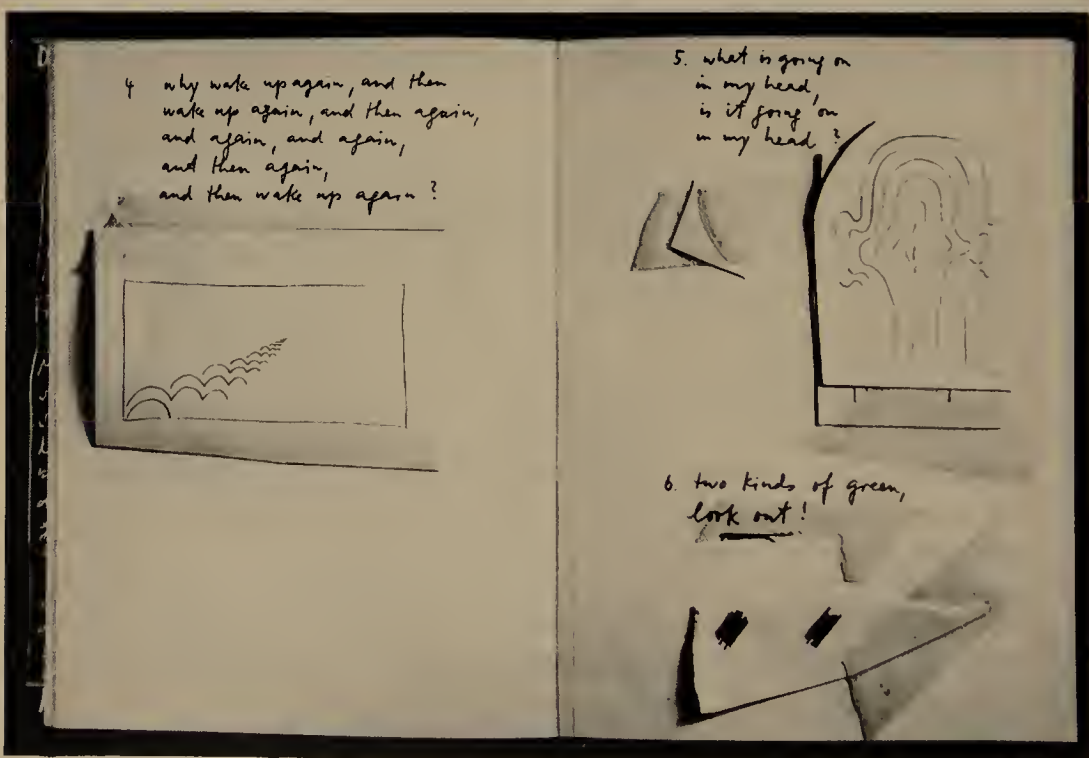 4 why wake up again, and then
wake up again, and then again,
and again, and again,
and then again,
and then wake up again?
5. what is going on
in my head,
is it going on
in my head?
6. two kinds of green,
look out!